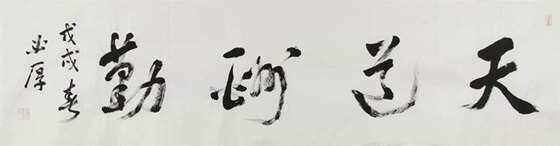 天道酬勤
戊戌春
必厚